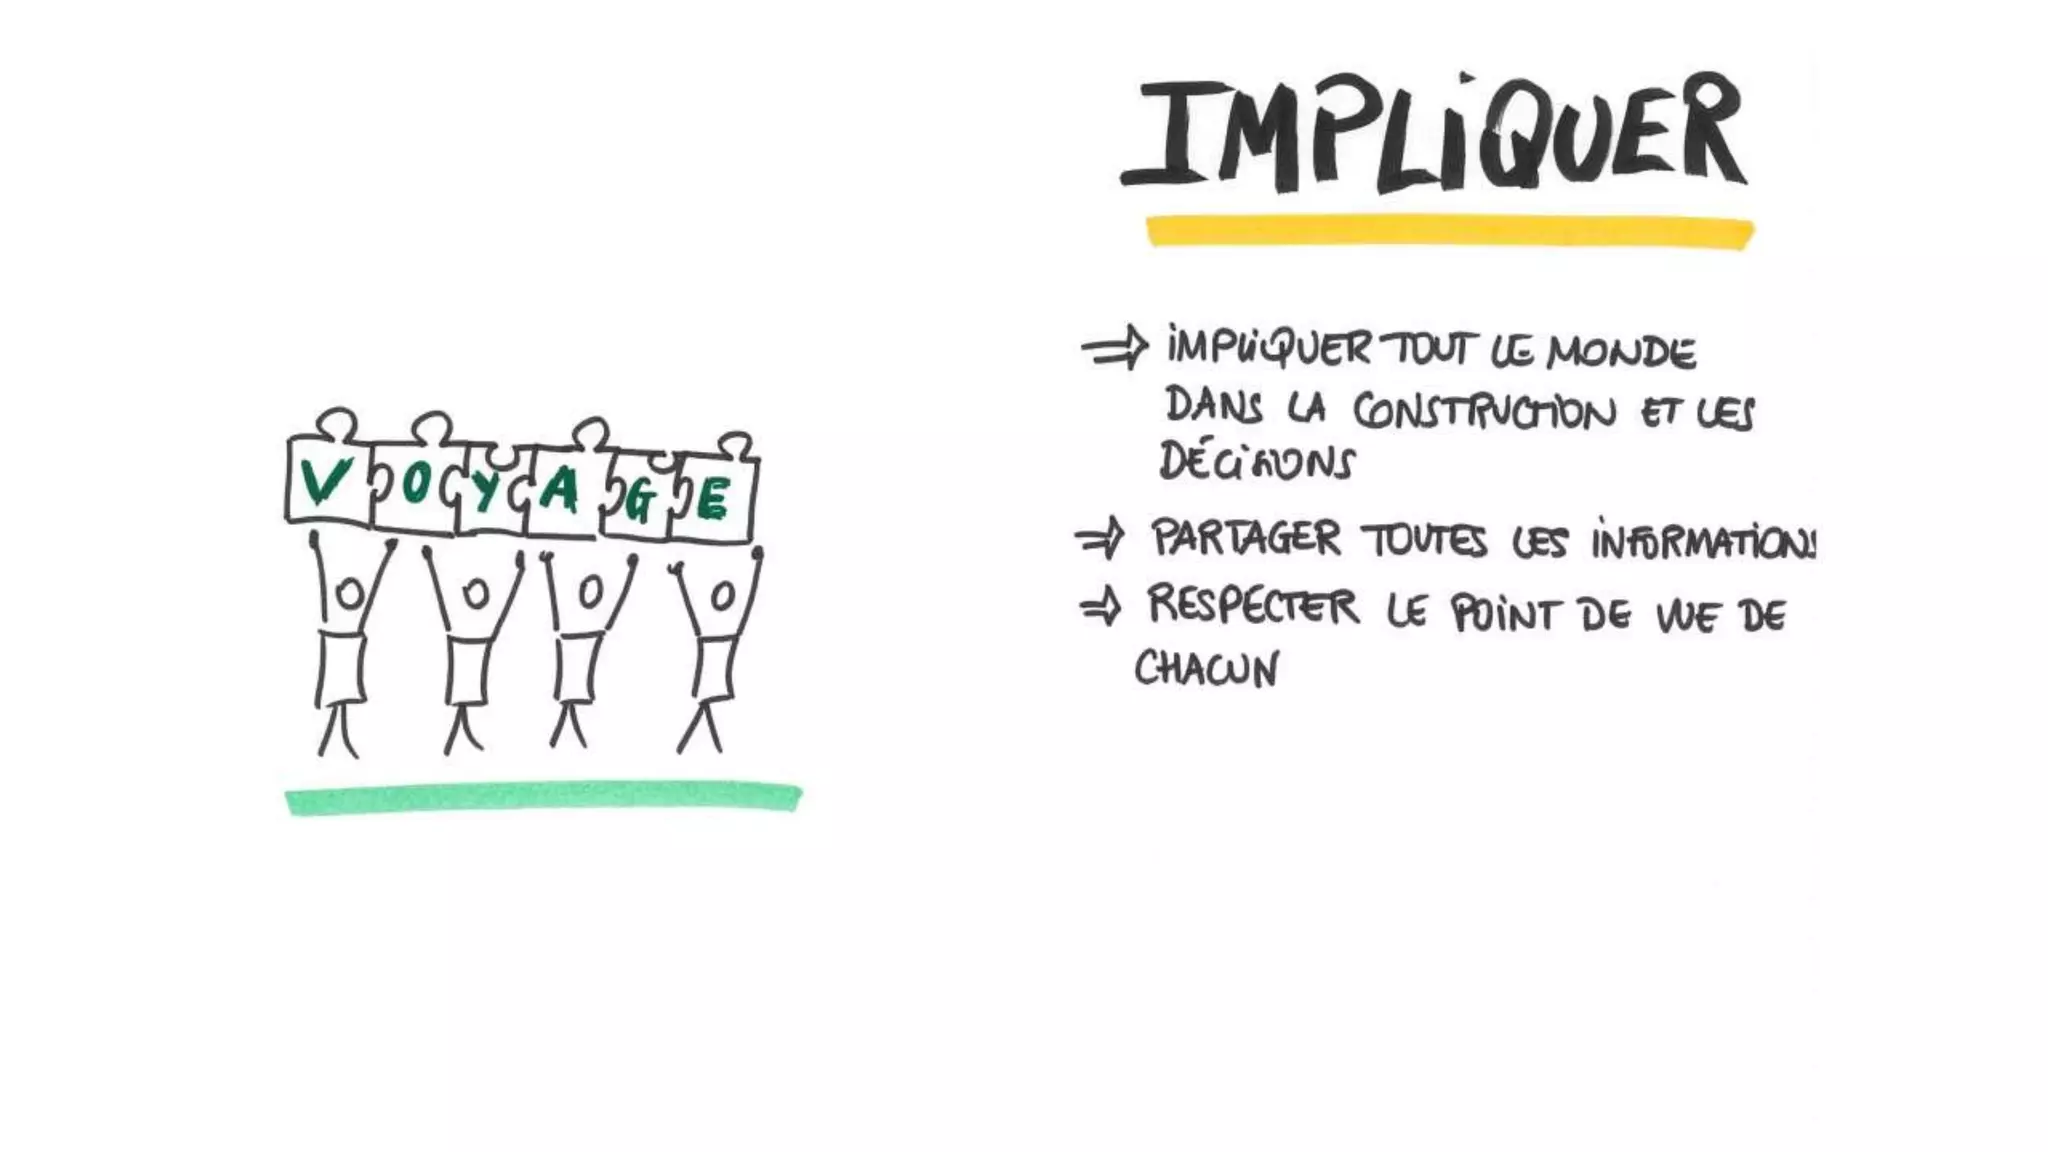 VOYAGE
IMPLIQUER
⇒ IMPLIQUER TOUT LE MONDE
DANS LA CONSTRUCTION ET LES
DÉCISIONS
⇒ PARTAGER TOUTES LES INFORMATIONS
⇒ RESPECTER LE POINT DE VUE DE
CHACUN